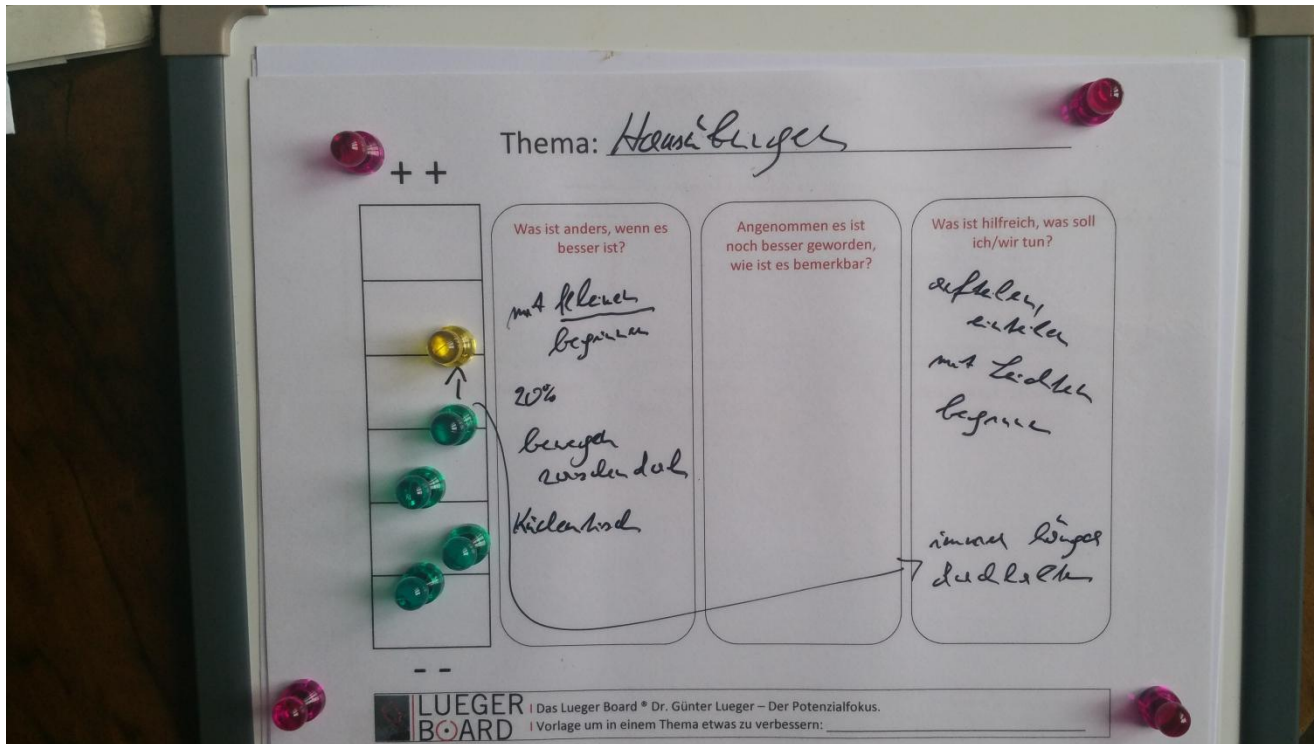 Thema: Hausübungen
+ +
Was ist anders, wenn es
besser ist?
mit kleinen
beginnen
20%
bewegen
zwischendurch
Küchentisch
Angenommen es ist
noch besser geworden,
wie ist es bemerkbar?
Was ist hilfreich, was soll
ich/wir tun?
aufteilen,
einteilen
mit Leichten
beginnen
immer länger
durchhalten
- -
LUEGER
BOARD
Das Lueger Board ® Dr. Günter Lueger – Der Potenzialfokus.
Vorlage um in einem Thema etwas zu verbessern: